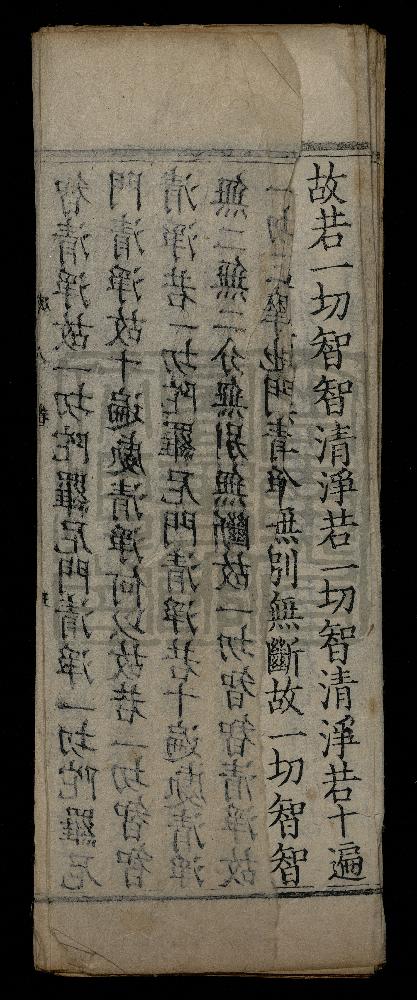 故若一切智智清淨若一切智清淨若十遍
無別無斷故一切智智
智清淨故一切陀羅尼門清淨一切陀羅尼
門清淨故十遍處清淨何以故若一切智智
清淨若一切陀羅尼門清淨若十遍處清淨
無二無二分無別無斷故一切智智清淨故
一切三摩地門清